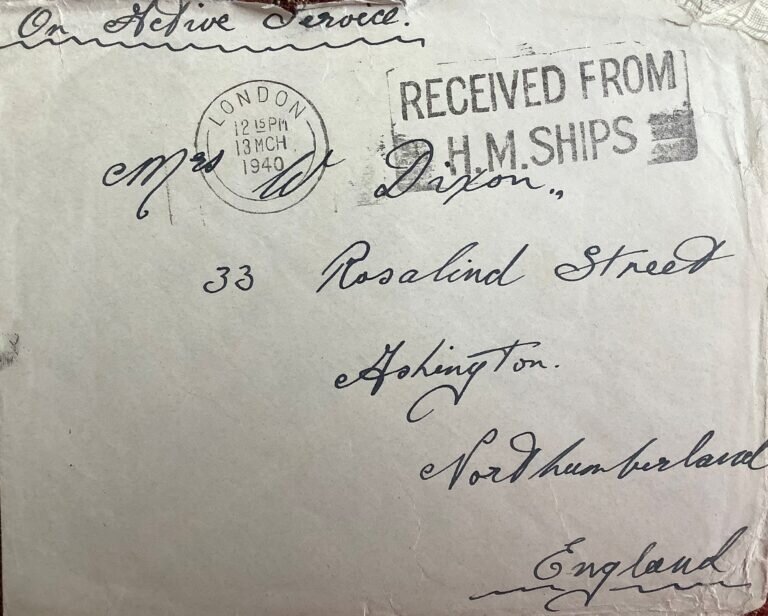 On Active Service.
LONDON
12 15 PM
13 MCH
1940
RECEIVED FROM
H.M. SHIPS
Mrs W Dixon,,
33 Rosalind Street
Ashington.
Northumberland
England